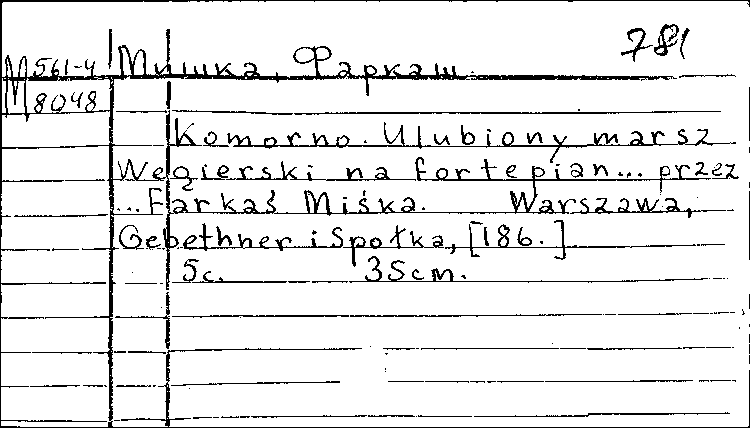 781
М 561-4 Мишка, Фаркаш.
8048
Komorno. Ulubiony marsz
Węgierski na fortepian... przez
...Farkaś Miśka. Warszawa,
Gebethner i Społka, [186.]
5c. 35cm.